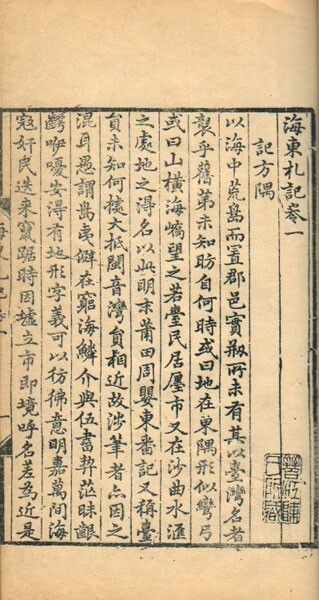 海東札記卷一
記方隅
以海中荒島而置郡邑實剏所未有其以臺灣名者
襲乎舊第未知昉自何時或曰地在東隅形似彎弓
或曰山橫海嶠望之若臺民居廛市又在沙曲水滙
之處地之得名以此明末莆田周嬰東番記又稱臺
員未知何據大抵閩音灣員相近故涉筆者亦因之
混耳愚謂島夷僻在窮海鱗介與伍書契茫昧齦
齶咿嚘安得有地形字義可以彷彿意明嘉萬間海
寇奸民迭來竄踞時因墟立市即境呼名差為近是